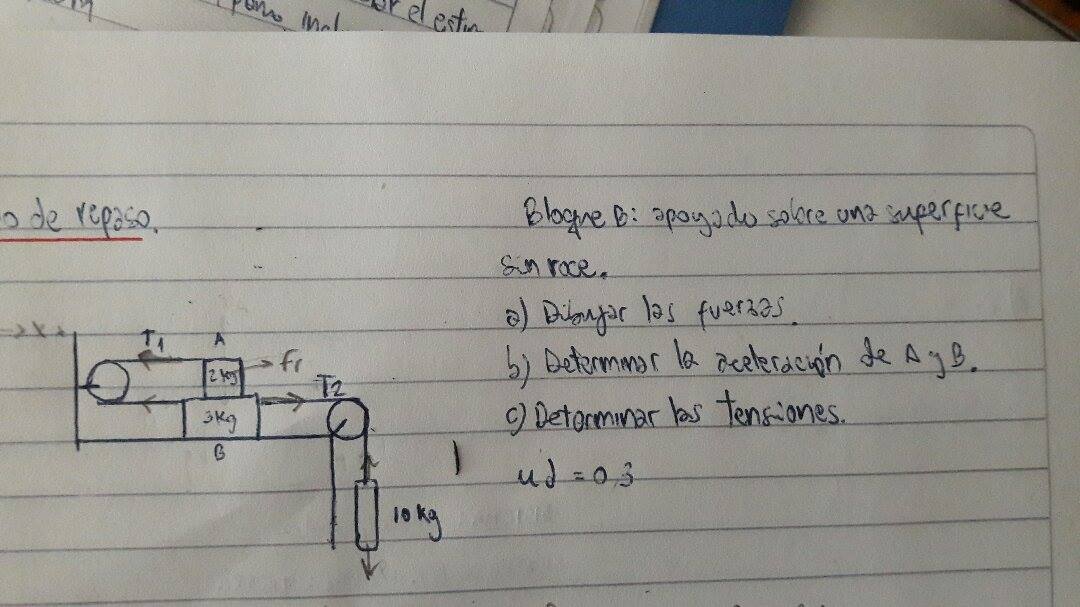 el estin
o de repaso.
Bloque B: apoyado sobre una superficie
sin roce.
a) Dibujar las fuerzas.
b) Determinar la aceleración de A y B.
c) Determinar las tensiones.
ud = 0.3
x
T1
A
fr
2kg
T2
3kg
B
10kg